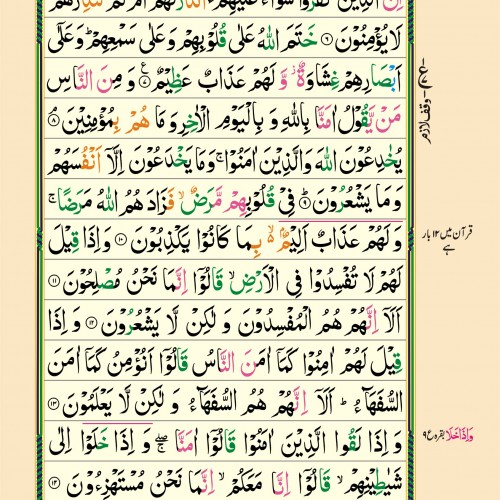 اِنَّ الَّذِيْنَ كَفَرُوْا سَوَآءٌ عَلَيْهِمْ ءَاَنْذَرْتَهُمْ اَمْ لَمْ تُنْذِرْهُمْ
لَا يُؤْمِنُوْنَ ۶ خَتَمَ اللّٰهُ عَلٰى قُلُوْبِهِمْ وَ عَلٰى سَمْعِهِمْ ؕ وَ عَلٰۤى
اَبْصَارِهِمْ غِشَاوَةٌ ؗ وَّ لَهُمْ عَذَابٌ عَظِيْمٌ ۷ وَ مِنَ النَّاسِ
مَنْ يَّقُوْلُ اٰمَنَّا بِاللّٰهِ وَ بِالْيَوْمِ الْاٰخِرِ وَ مَا هُمْ بِمُؤْمِنِيْنَ ۘ ۸
يُخٰدِعُوْنَ اللّٰهَ وَ الَّذِيْنَ اٰمَنُوْا ۚ وَ مَا يَخْدَعُوْنَ اِلَّاۤ اَنْفُسَهُمْ
وَ مَا يَشْعُرُوْنَ ؕ ۹ فِيْ قُلُوْبِهِمْ مَّرَضٌ ۙ فَزَادَهُمُ اللّٰهُ مَرَضًا ۚ
وَ لَهُمْ عَذَابٌ اَلِيْمٌۢ ۙ۬ بِمَا كَانُوْا يَكْذِبُوْنَ ۱۰ وَ اِذَا قِيْلَ
لَهُمْ لَا تُفْسِدُوْا فِي الْاَرْضِ ۙ قَالُوْۤا اِنَّمَا نَحْنُ مُصْلِحُوْنَ ۱۱
اَلَاۤ اِنَّهُمْ هُمُ الْمُفْسِدُوْنَ وَ لٰكِنْ لَّا يَشْعُرُوْنَ ۱۲ وَ اِذَا
قِيْلَ لَهُمْ اٰمِنُوْا كَمَاۤ اٰمَنَ النَّاسُ قَالُوْۤا اَنُؤْمِنُ كَمَاۤ اٰمَنَ
السُّفَهَآءُ ؕ اَلَاۤ اِنَّهُمْ هُمُ السُّفَهَآءُ وَ لٰكِنْ لَّا يَعْلَمُوْنَ ۱۳
وَ اِذَا لَقُوا الَّذِيْنَ اٰمَنُوْا قَالُوْۤا اٰمَنَّا ۚۖ وَ اِذَا خَلَوْا اِلٰى
شَيٰطِيْنِهِمْ ۙ قَالُوْۤا اِنَّا مَعَكُمْ ۙ اِنَّمَا نَحْنُ مُسْتَهْزِءُوْنَ ۱۴
وقف لازم
قرآن میں ۱۲ بار
ہے
وَاِذَا خَلَا بقرہ ع ۹